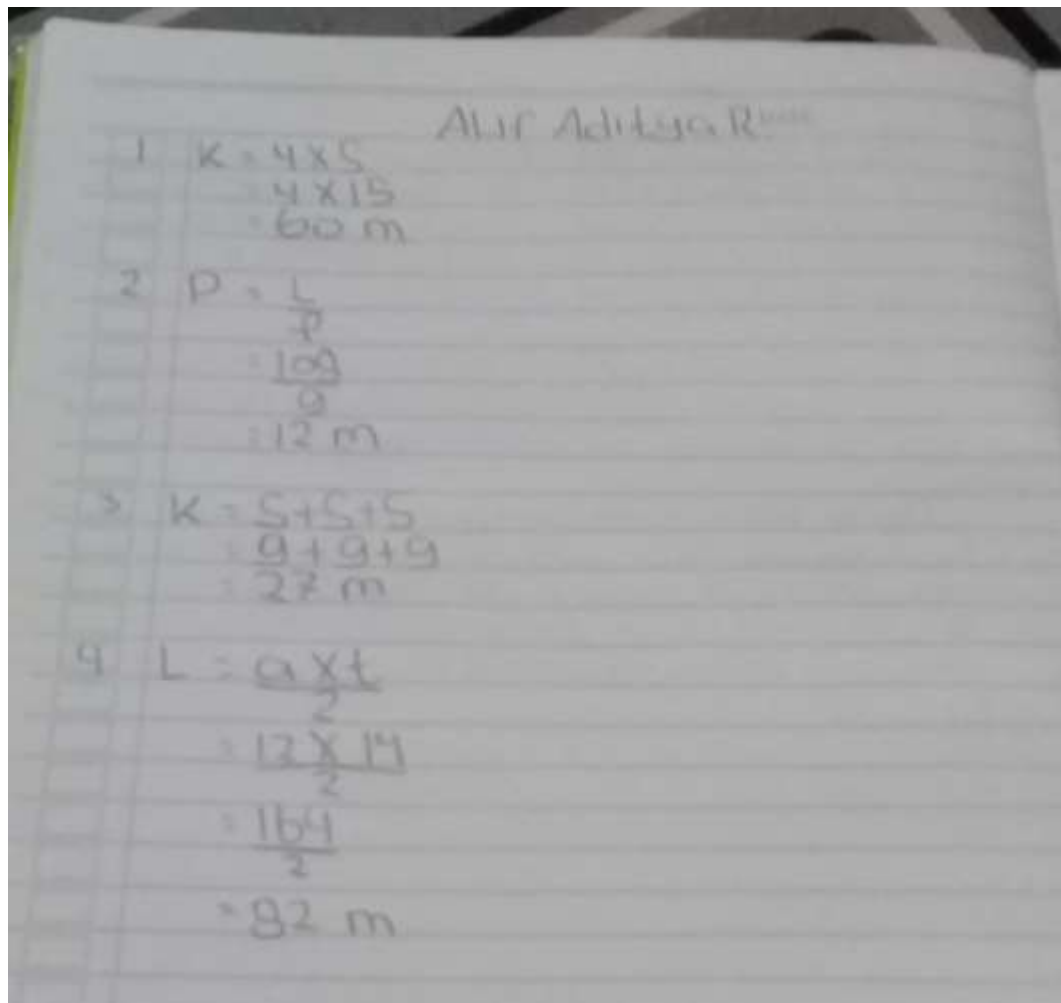 Alif Aditya R
1 K = 4 x S
= 4 x 15
= 60 m
2 P = L
l
= 108
9
= 12 m
3 K = S+S+S
= 9+9+9
= 27 m
4 L = a x t
2
= 12 x 14
2
= 164
2
= 82 m